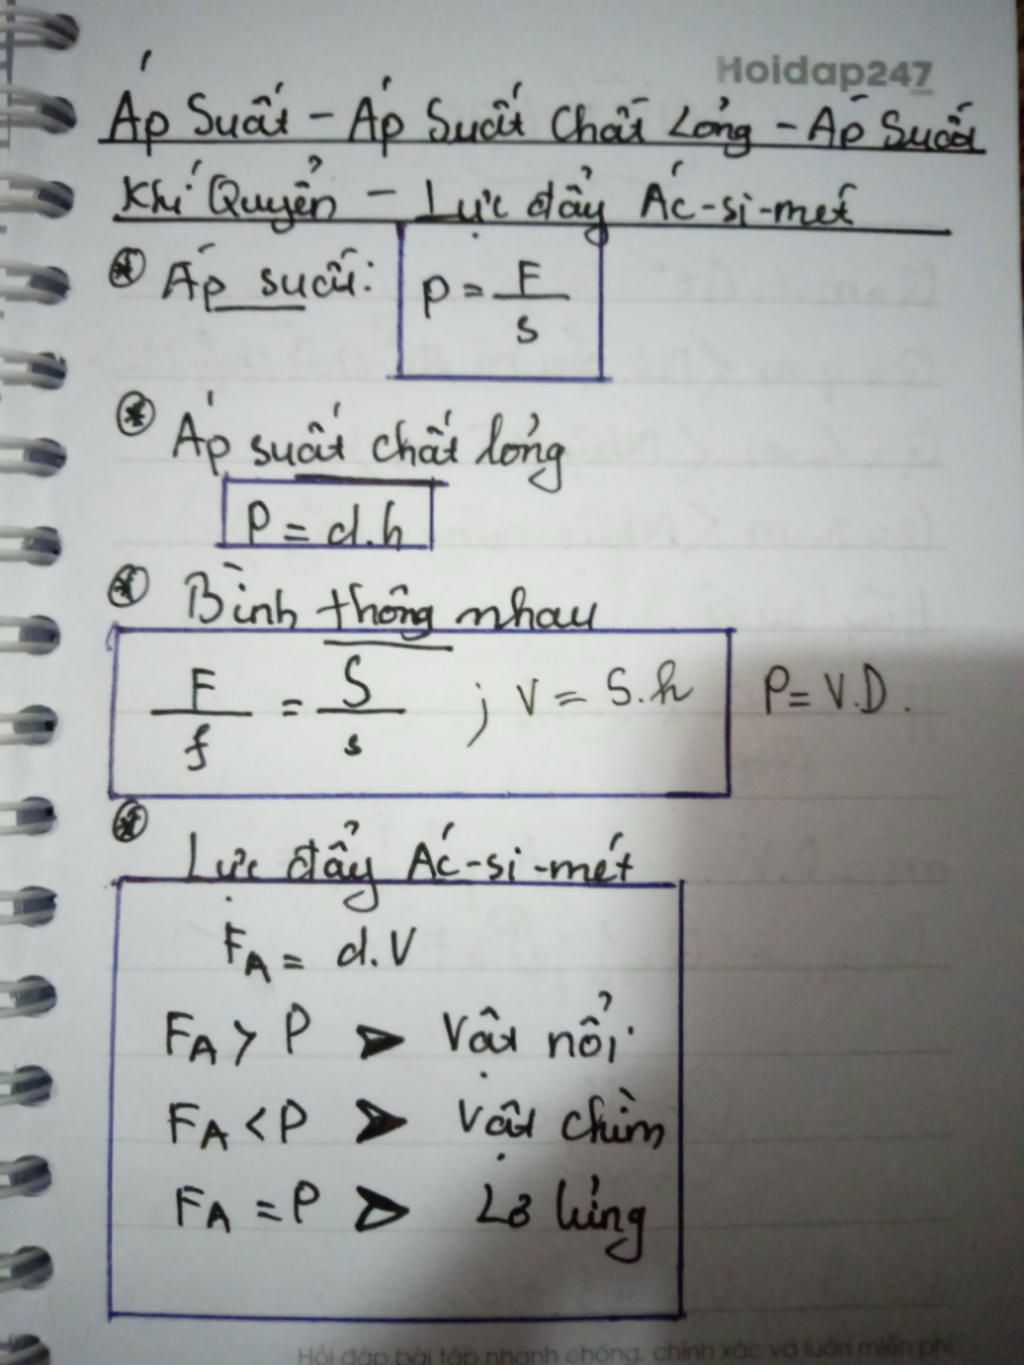 Hoidap247
Áp Suất - Áp Suất Chất Lỏng - Áp Suất
Khí Quyển - Lực đẩy Ác-si-mét
* Áp suất: p = F / s
* Áp suất chất lỏng
P = d.h
* Bình thông nhau
F / f = S / s ; V = S.h P = V.D.
* Lực đẩy Ác-si-mét
FA = d.V
FA > P ➤ Vật nổi
FA < P ➤ Vật chìm
FA = P ➤ Lơ lửng
Hỏi đáp bài tập nhanh chóng, chính xác và luôn miễn phí